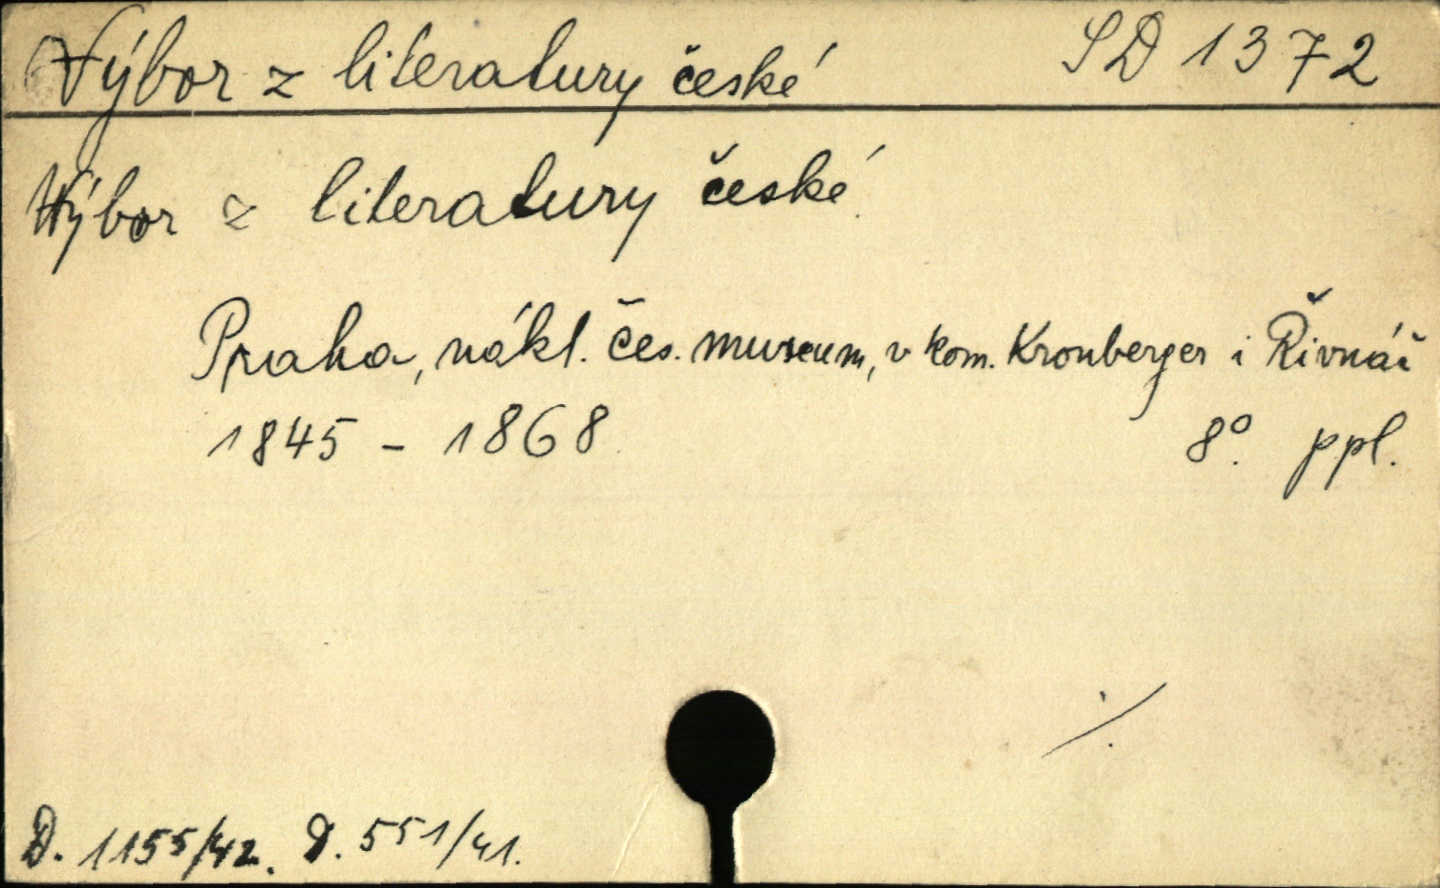 Výbor z literatury české SD 1372
Výbor z literatury české
Praha, nákl. čes. museum, v kom. Kronberger i Řivnáč
1845 - 1868 8° ppl.
./.
D. 1155/42. D. 551/41.